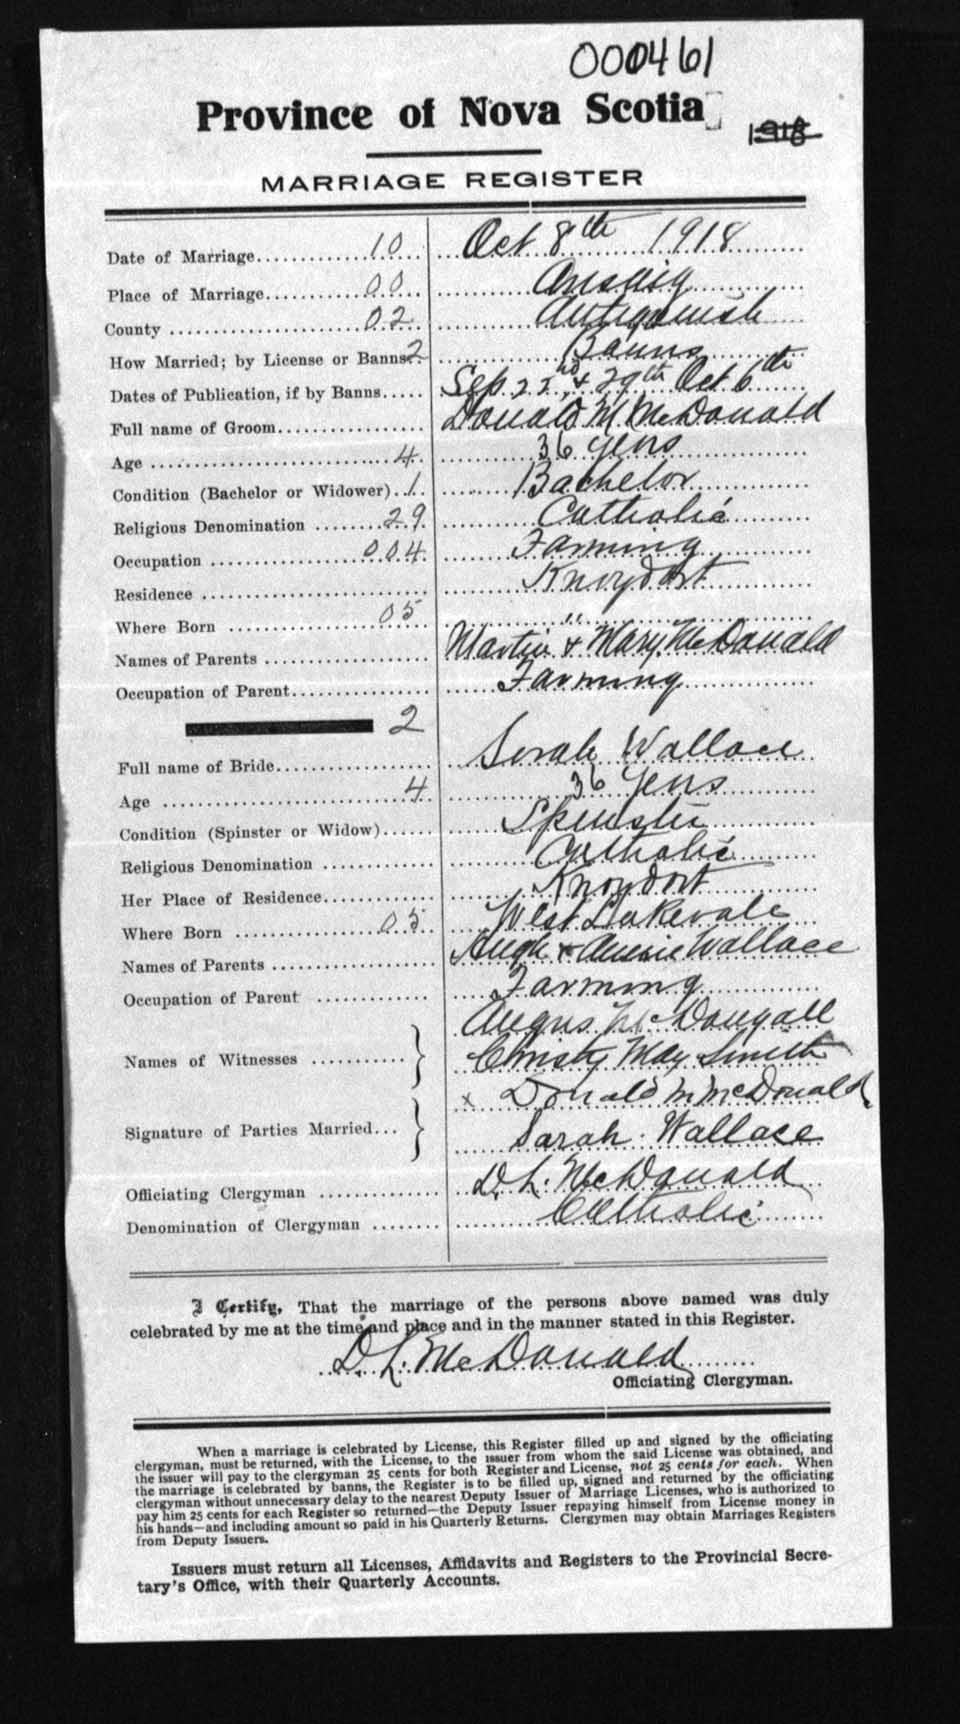 000461
Province of Nova Scotia
1918
MARRIAGE REGISTER
Date of Marriage............10.. Oct 8th 1918
Place of Marriage............00.. Arisaig
County............02.. Antigonish
How Married; by License or Banns..2 Banns
Dates of Publication, if by Banns..... Sep 22nd & 29th Oct 6th
Full name of Groom............ Donald M. McDonald
Age............4.. 36 years
Condition (Bachelor or Widower)..1. Bachelor
Religious Denomination........29. Catholic
Occupation............004. Farming
Residence............ Knoydort
Where Born............05. "
Names of Parents............ Martin & Mary McDonald
Occupation of Parent............ Farming
2
Full name of Bride............ Sarah Wallace
Age............4. 36 years
Condition (Spinster or Widow)...... Spinster
Religious Denomination............ Catholic
Her Place of Residence............ Knoydort
Where Born............05. West Lakevale
Names of Parents............ Hugh & Annie Wallace
Occupation of Parent............ Farming
Angus McDougall
Names of Witnesses............} Christy May Smith
x Donald M McDonald
Signature of Parties Married...} Sarah Wallace
Officiating Clergyman............ D. L. McDonald
Denomination of Clergyman........ Catholic
I Certify, That the marriage of the persons above named was duly
celebrated by me at the time and place and in the manner stated in this Register.
D. L. McDonald
Officiating Clergyman.
When a marriage is celebrated by License, this Register filled up and signed by the officiating
clergyman, must be returned, with the License, to the issuer from whom the said License was obtained, and
the issuer will pay to the clergyman 25 cents for both Register and License, not 25 cents for each. When
the marriage is celebrated by banns, the Register is to be filled up, signed and returned by the officiating
clergyman without unnecessary delay to the nearest Deputy Issuer of Marriage Licenses, who is authorized to
pay him 25 cents for each Register so returned—the Deputy Issuer repaying himself from License money in
his hands—and including amount so paid in his Quarterly Returns. Clergymen may obtain Marriages Registers
from Deputy Issuers.
Issuers must return all Licenses, Affidavits and Registers to the Provincial Secre-
tary's Office, with their Quarterly Accounts.